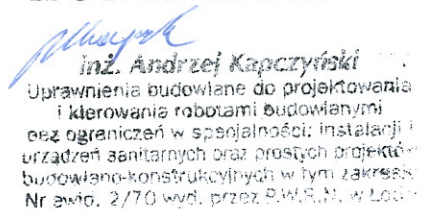 inż. Andrzej Kapczyński
Uprawnienia budowlane do projektowania
i kierowania robotami budowlanymi
bez ograniczeń w specjalności: instalacji i
urządzeń sanitarnych oraz prostych projektów
budowlano-konstrukcyjnych w tym zakresie
Nr ewid. 2/70 wyd. przez P.W.R.N. w Łodzi